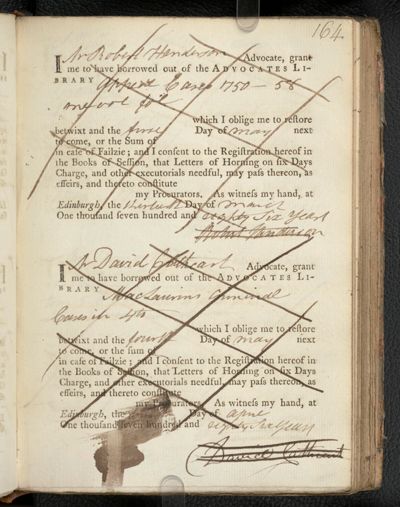 164
I Mr Robert Henderson Advocate, grant
me to have borrowed out of the ADVOCATES LI-
BRARY Appeal Cases 1750–58
one vol fol°
which I oblige me to reſtore
betwixt and the Day of May next
to come, or the Sum of
in caſe of Failzie; and I conſent to the Regiſtration hereof in
the Books of Seſſion, that Letters of Horning on ſix Days
Charge, and other executorials needful, may paſs thereon, as
effeirs, and thereto conſtitute
my Procurators. As witneſs my hand, at
Edinburgh, the thirtieth Day of March
One thouſand ſeven hundred and eighty Six Years
Robert Henderson
I Mr David Cathcart Advocate, grant
me to have borrowed out of the ADVOCATES LI-
BRARY MacLaurins Criminal
Cases in 4to
which I oblige me to reſtore
betwixt and the fourth Day of May next
to come, or the ſum of
in caſe of Failzie; and I conſent to the Regiſtration hereof in
the Books of Seſſion, that Letters of Horning on ſix Days
Charge, and other executorials needful, may paſs thereon, as
effeirs, and thereto conſtitute
my Procurators. As witneſs my hand, at
Edinburgh, the Day of
One thouſand ſeven hundred and eighty Six years
David Cathcart